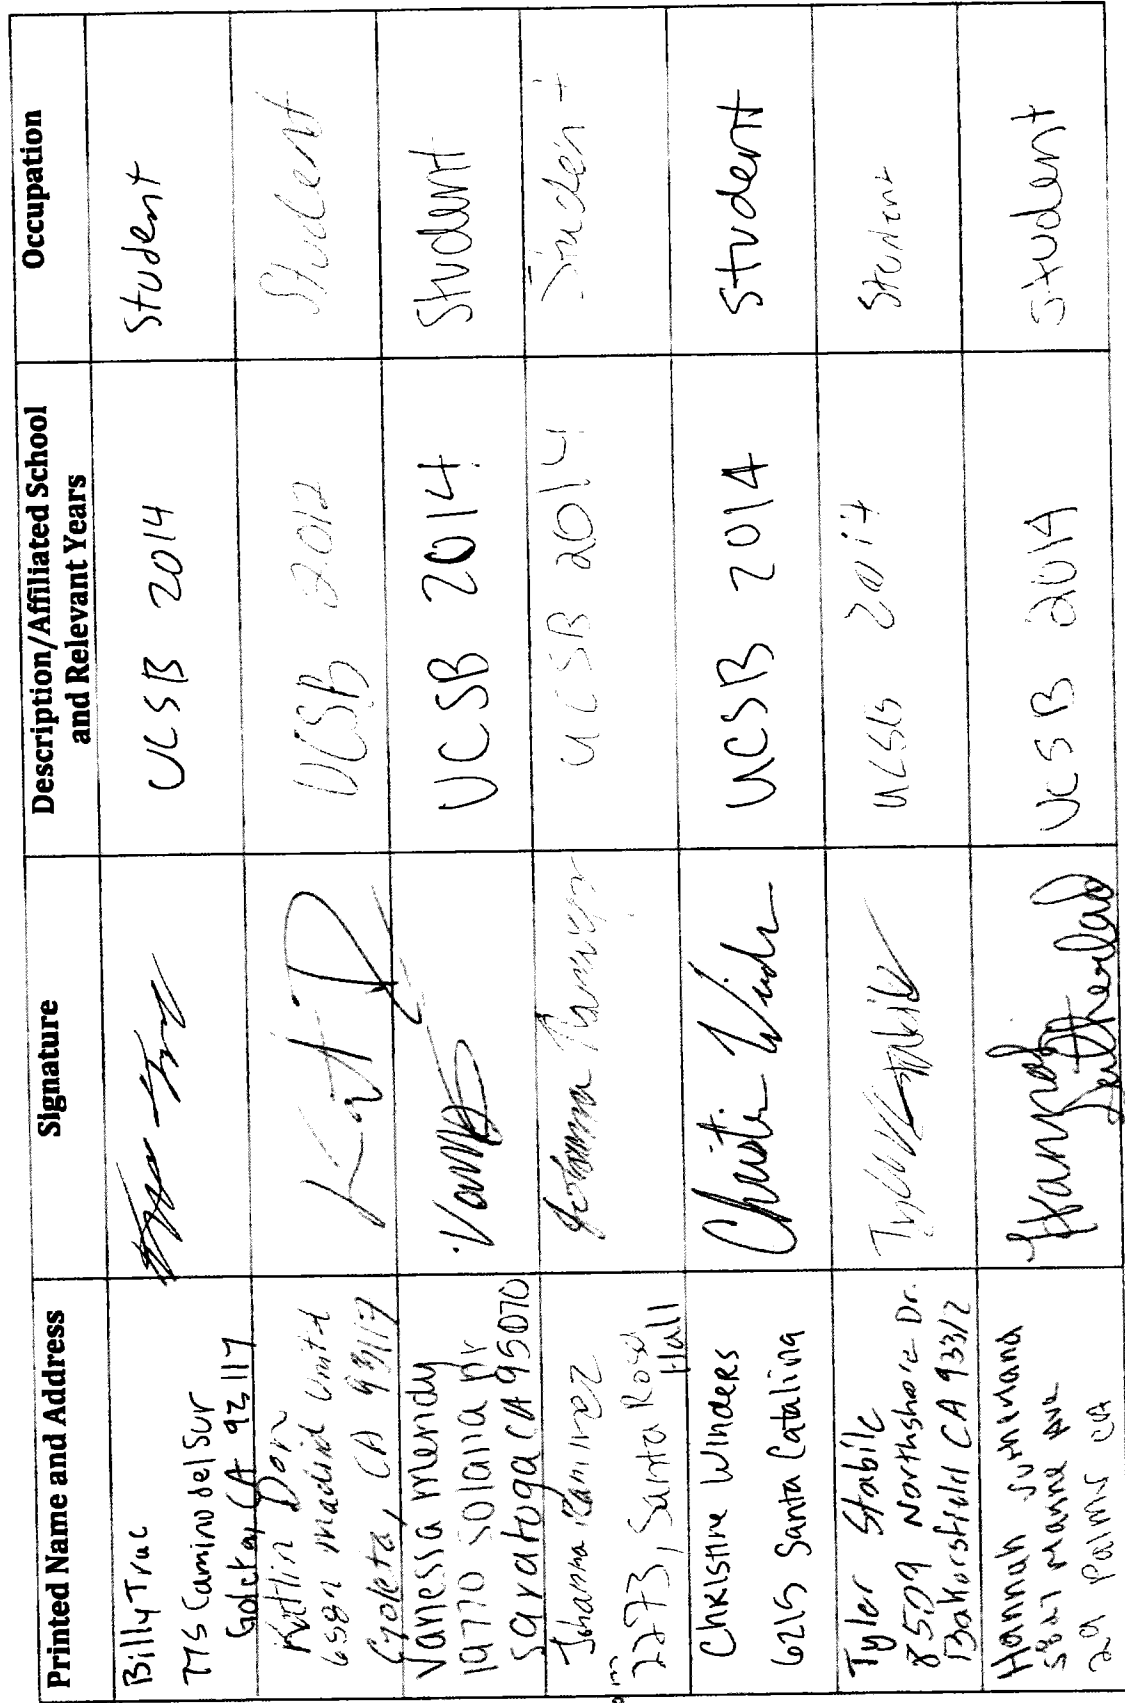 Printed Name and Address
Signature
Description/Affiliated School
and Relevant Years
Occupation
Billy Truc
775 Camino del Sur
Goleta, CA 93117
UCSB 2014
Student
Kutlin Dorn
6581 Madrid Unit d
Goleta, CA 93117
UCSB 2012
Student
Vanessa Mendy
19770 Solana Dr
Saratoga CA 95070
UCSB 2014
Student
Johanna Ramirez
2273, Santa Rosa
Hall
Johanna Ramirez
UCSB 2014
Student
Christine Winders
6215 Santa Catalina
UCSB 2014
Student
Tyler Stabile
8509 Northshore Dr.
Bakersfield CA 93312
UCSB 2014
Student
Hannah Sutherland
Ave
29 Palms CA
Hannah
Sutherland
UCSB 2014
Student